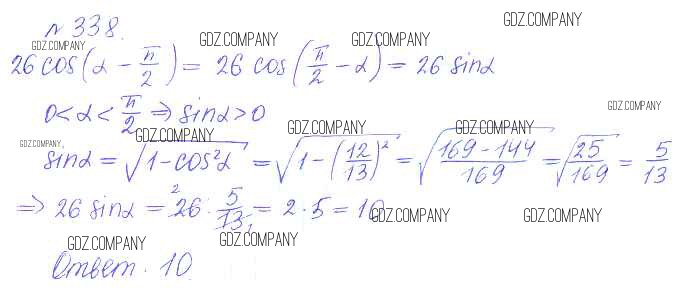 GDZ.COMPANY
№ 338.
GDZ.COMPANY GDZ.COMPANY GDZ.COMPANY
26 cos(α − π/2) = 26 cos(π/2 − α) = 26 sinα
GDZ.COMPANY
0 < α < π/2 ⇒ sinα > 0
GDZ.COMPANY GDZ.COMPANY GDZ.COMPANY
GDZ.COMPANY
sinα = √(1 − cos²α) = √(1 − (12/13)²) = √((169 − 144)/169) = √(25/169) = 5/13
⇒ 26 sinα = ²26 · 5/13₁ = 2 · 5 = 10
GDZ.COMPANY GDZ.COMPANY
GDZ.COMPANY GDZ.COMPANY
Ответ. 10